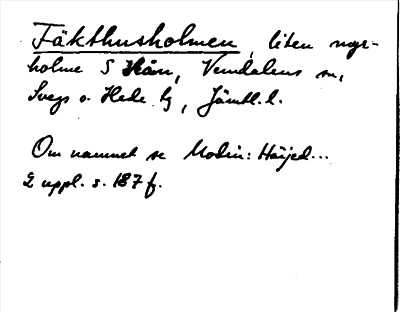 Fäkthusholmen, liten myr-
holme S Hån, Vemdalens sn,
Svegs o. Hede tg, Jämtl. l.
Om namnet se Modin: Härjed...
2 uppl. s. 187 f.